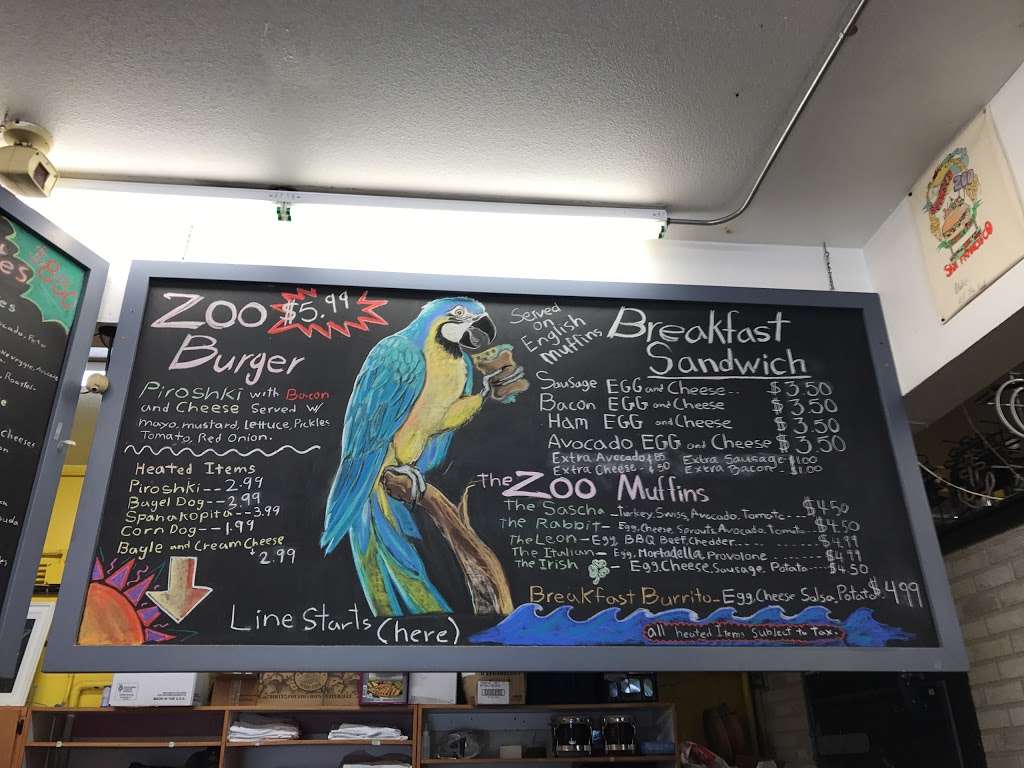 ZOO $5.99
Burger
Piroshki with Bacon
and Cheese Served W/
mayo, mustard, lettuce, Pickles
Tomato, Red Onion.
Heated Items
Piroshki -- 2.99
Bagel Dog -- 2.99
Spanakopita -- 3.99
Corn Dog -- 1.99
Bayle and Cream Cheese
$2.99
Line Starts (here)
Served
on
English
Muffins
Breakfast
Sandwich
Sausage EGG and Cheese -- $3.50
Bacon EGG and Cheese $3.50
Ham EGG and Cheese $3.50
Avocado EGG and Cheese $3.50
Extra Avocado Extra Sausage $1.00
Extra Cheese - $.50 Extra Bacon - $1.00
The ZOO Muffins
The Sascha - Turkey, Swiss, Avocado, Tomato --- $4.50
The Rabbit - Egg, Cheese, Sprouts, Avocado, Tomato -- $4.50
The Leon - Egg BBQ Beef, Chedder ------ $4.99
The Italian - Egg, Mortadella, Provolone -------- $4.99
The Irish - Egg, Cheese, Sausage, Potato ---- $4.50
Breakfast Burrito - Egg, Cheese Salsa, Potato $4.99
all heated Items Subject to Tax.
ZOO
San Francisco